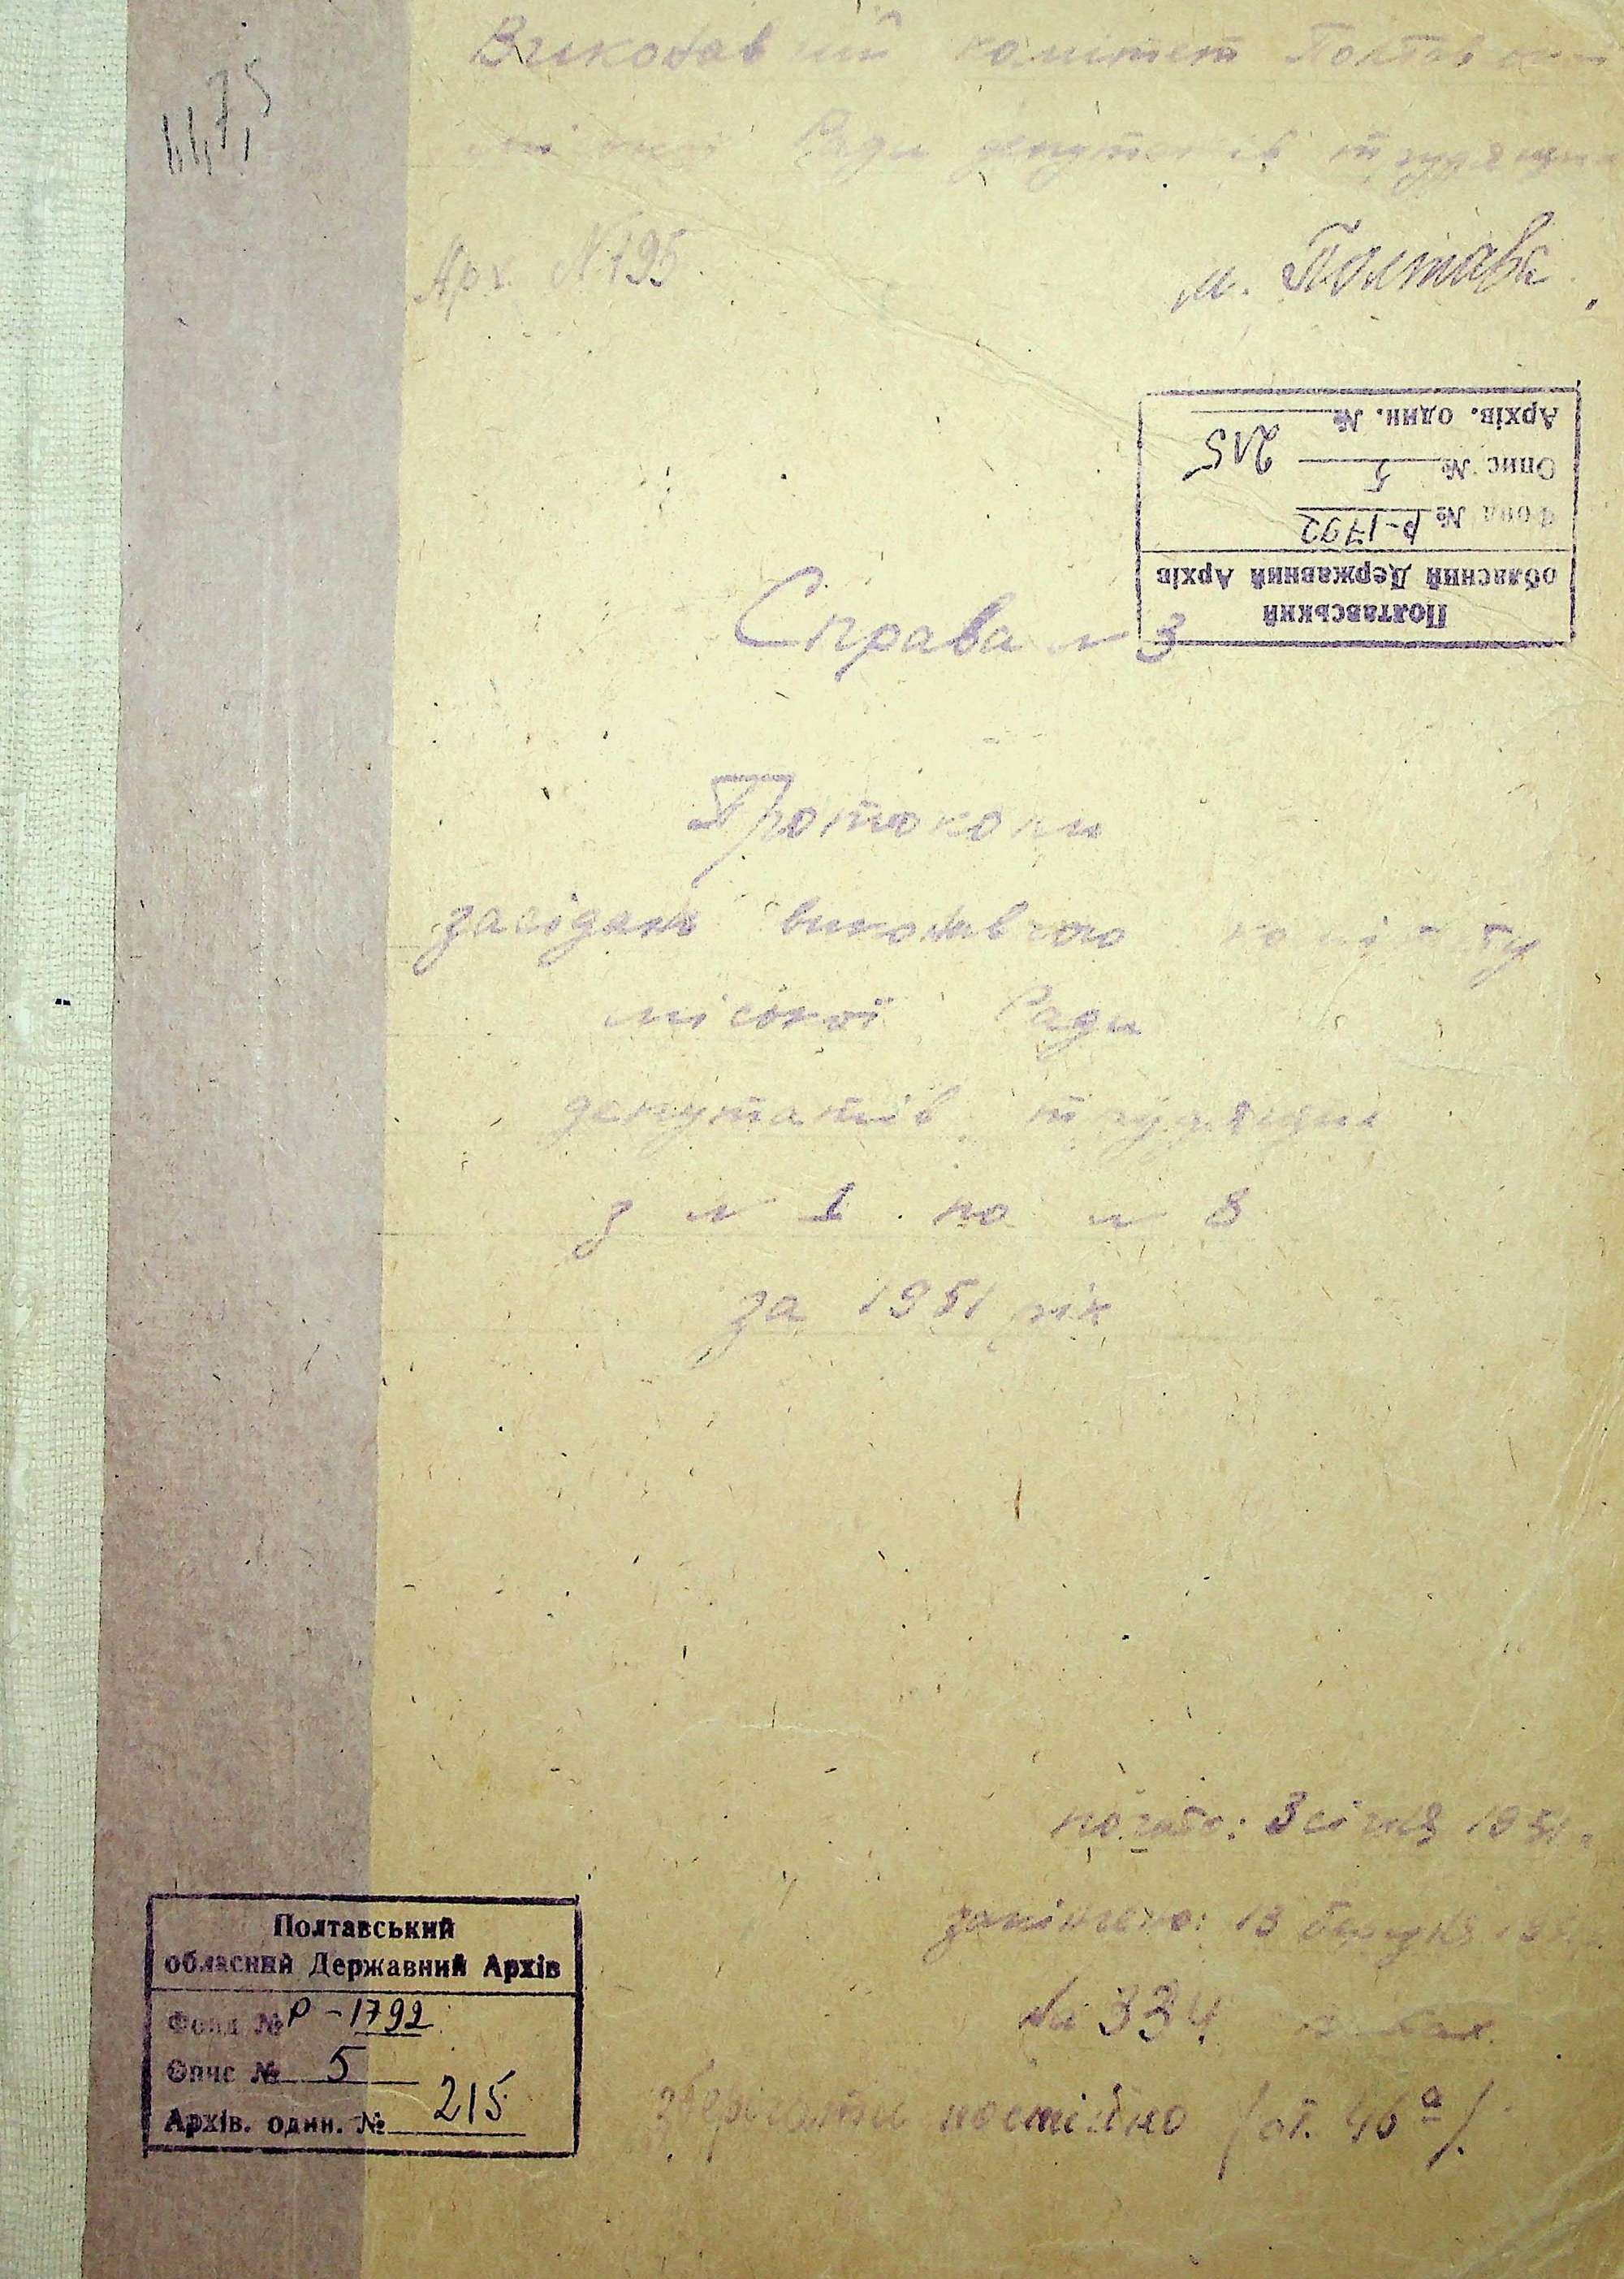 Виконавчий комітет Полтавської
міської Ради депутатів трудящих
Арх. №195
м. Полтава
Полтавський
обласний Державний Архів
Фонд № Р-1792
Опис № 5
Архів. один. № 215
Справа № 3
Протоколи
засідань виконавчого комітету
міської Ради
депутатів трудящих
з № 1 по № 8
за 1951 рік
почато: 3 січня 1951 р.
закінчено: 13 березня 195
На 334
Зберігати постійно /ст. 46а/.
Полтавський
обласний Державний Архів
Фонд № Р-1792
Опис № 5
Архів. один. № 215